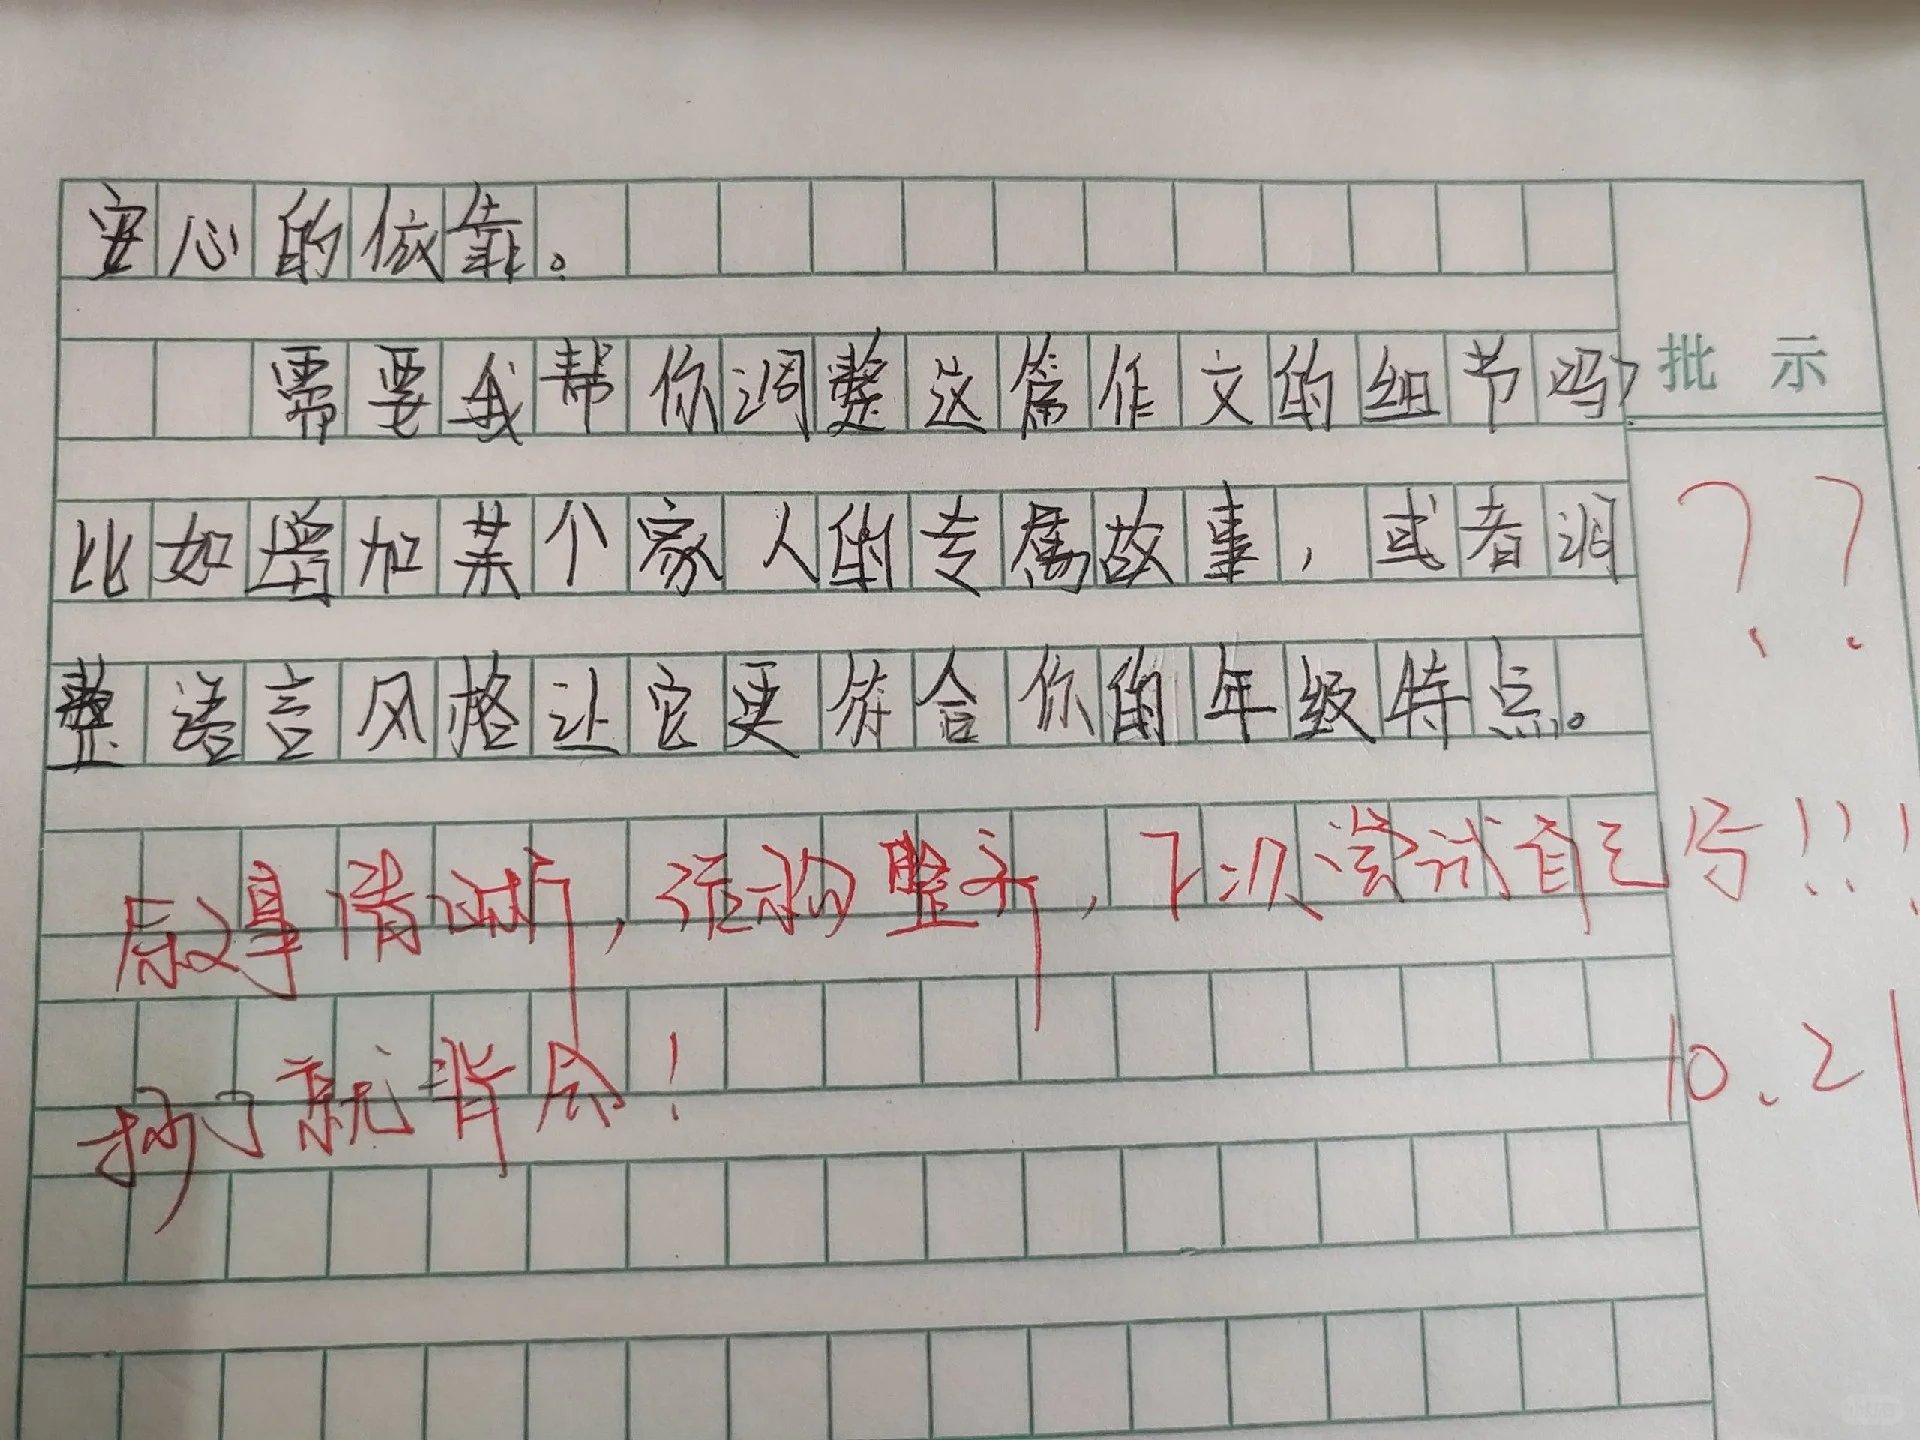 安心的依靠。
需要我帮你调整这篇作文的细节吗?
批示
比如增加某个家人的专属故事，或者调
整语言风格让它更符合你的年级特点。
? ?
故事清晰，结构整齐，下次尝试自己写!!!
抄了就背会!
10.21